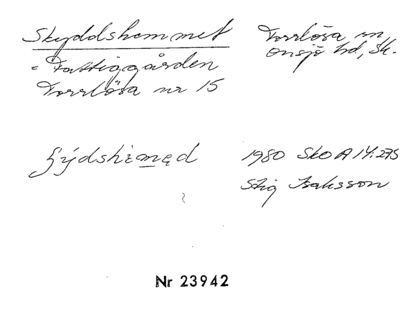 Skyddshemmet
Torrlösa sn
Onsjö hd, Sk.
= Fattiggården
Torrlösa nr 15
1980 SkO A 14:275
Stig Isaksson
Nr 23942